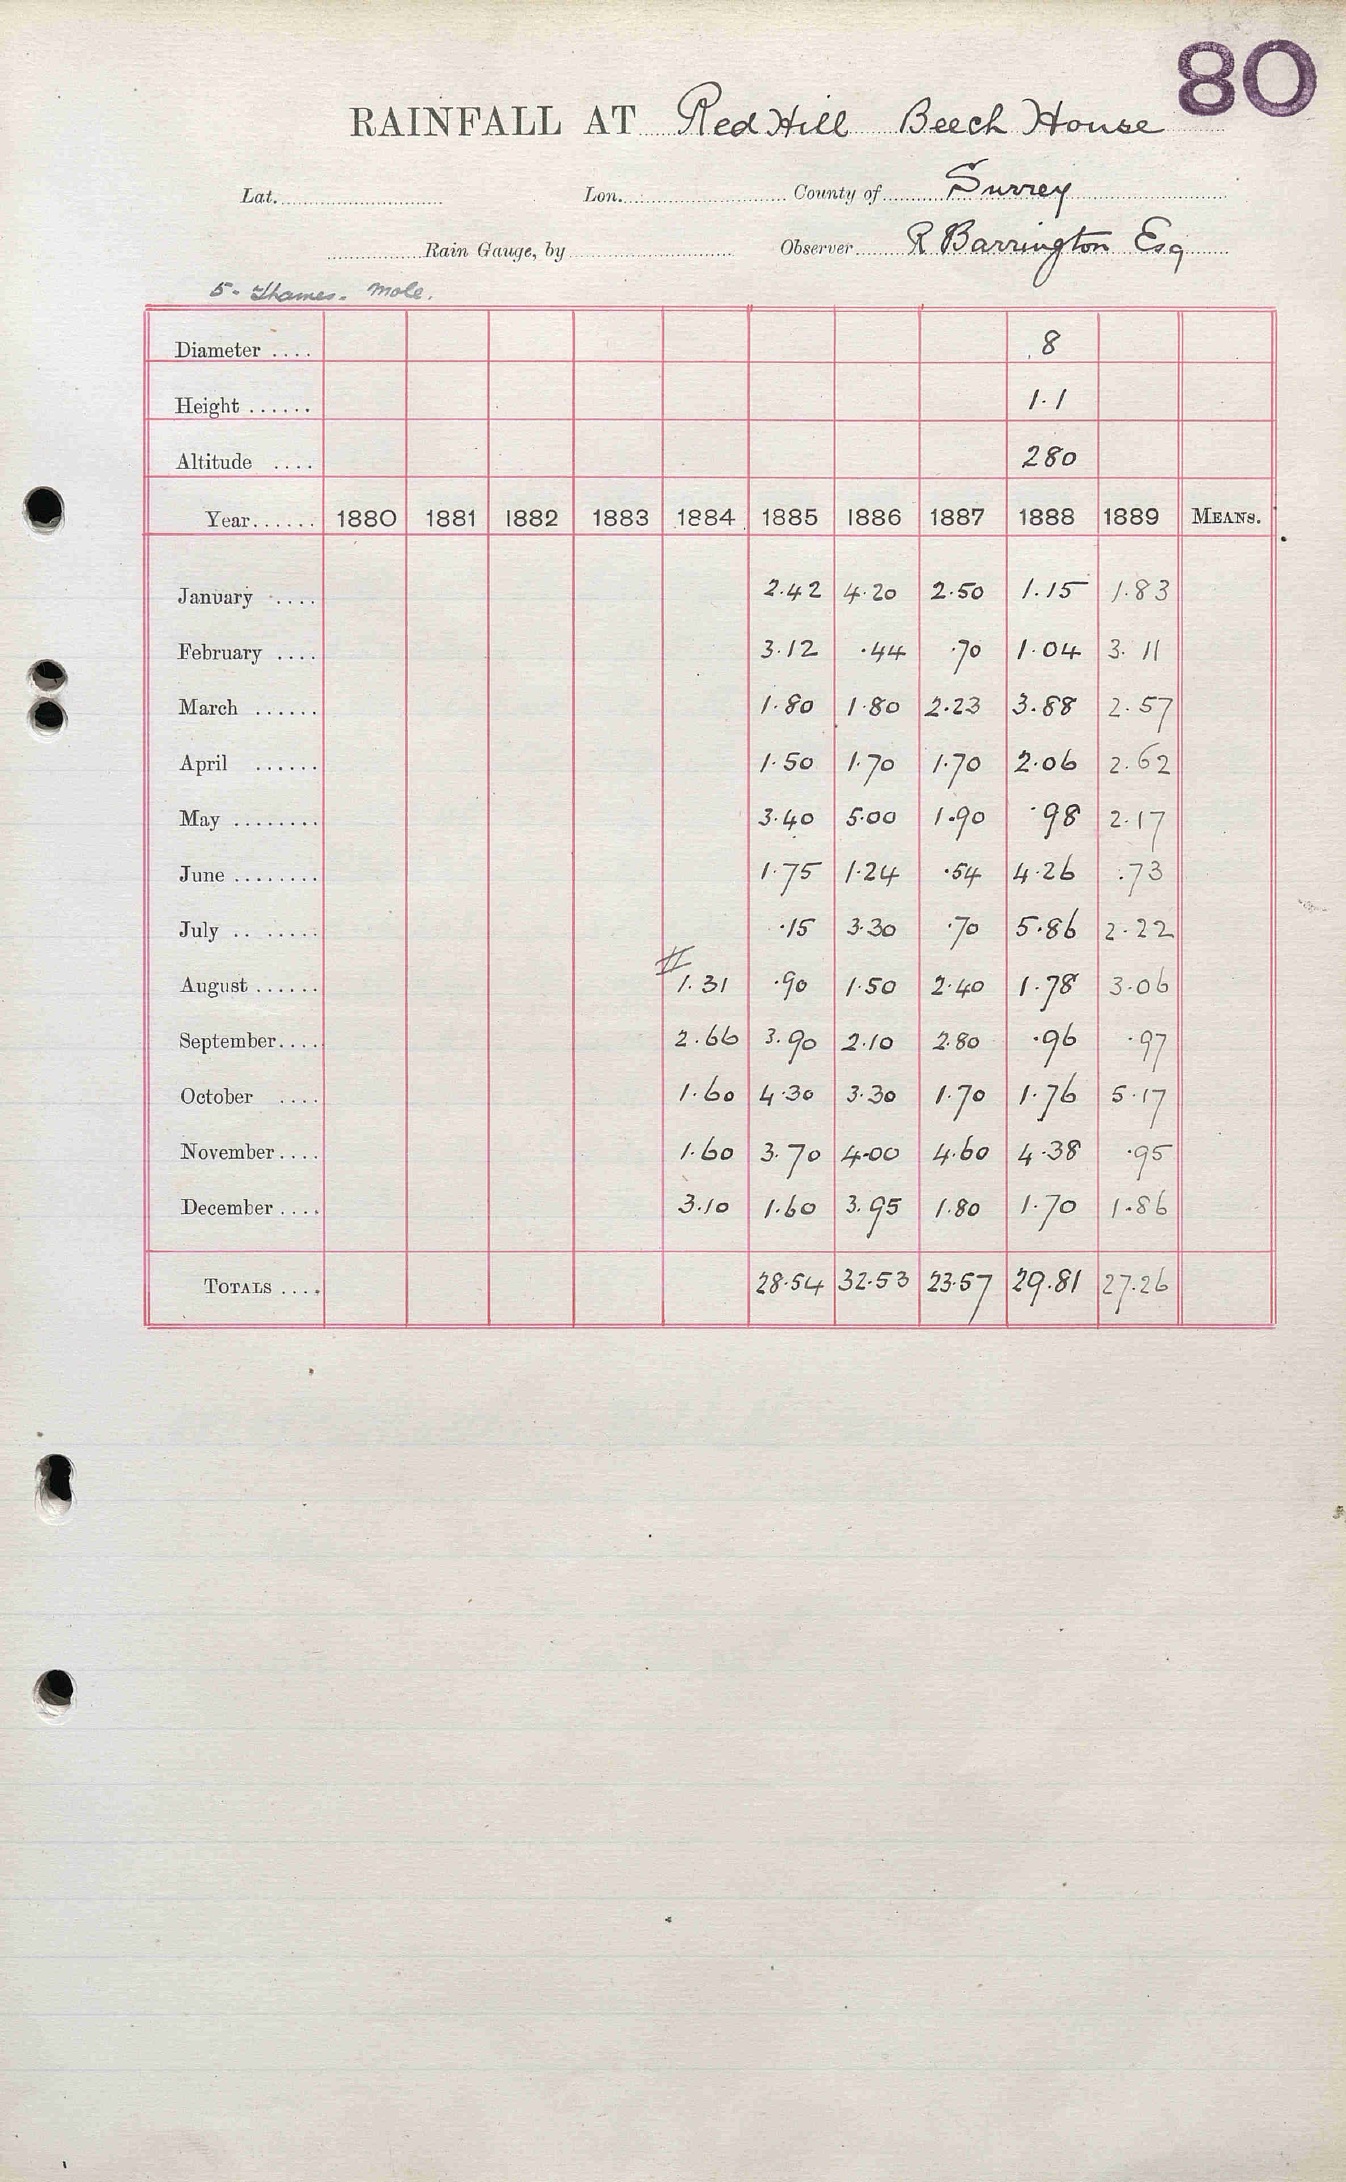 80
RAINFALL AT Red Hill Beech House
Lat. Lon. County of Surrey
Rain Gauge, by Observer R Barrington Esq
5 - Thames - Mole.
Diameter .... 8
Height ...... 1.1
Altitude .... 280
Year...... 1880 1881 1882 1883 1884 1885 1886 1887 1888 1889 MEANS.
January .... 2.42 4.20 2.50 1.15 1.83
February .... 3.12 .44 .70 1.04 3.11
March ...... 1.80 1.80 2.23 3.88 2.57
April ...... 1.50 1.70 1.70 2.06 2.62
May ........ 3.40 5.00 1.90 .98 2.17
June ........ 1.75 1.24 .54 4.26 .73
July .. ...... .15 3.30 .70 5.86 2.22
August ...... # 1.31 .90 1.50 2.40 1.78 3.06
September.... 2.66 3.90 2.10 2.80 .96 .97
October .... 1.60 4.30 3.30 1.70 1.76 5.17
November.... 1.60 3.70 4.00 4.60 4.38 .95
December .... 3.10 1.60 3.95 1.80 1.70 1.86
TOTALS .... 28.54 32.53 23.57 29.81 27.26